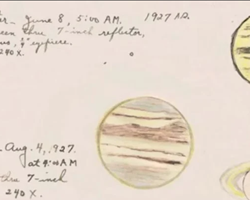 June 8, 5:00 A.M. 1927
three 7-inch reflector,
eyepiece.
240X.
Aug. 4, 1927.
at 9:00 AM
thro 7-inch
240X.